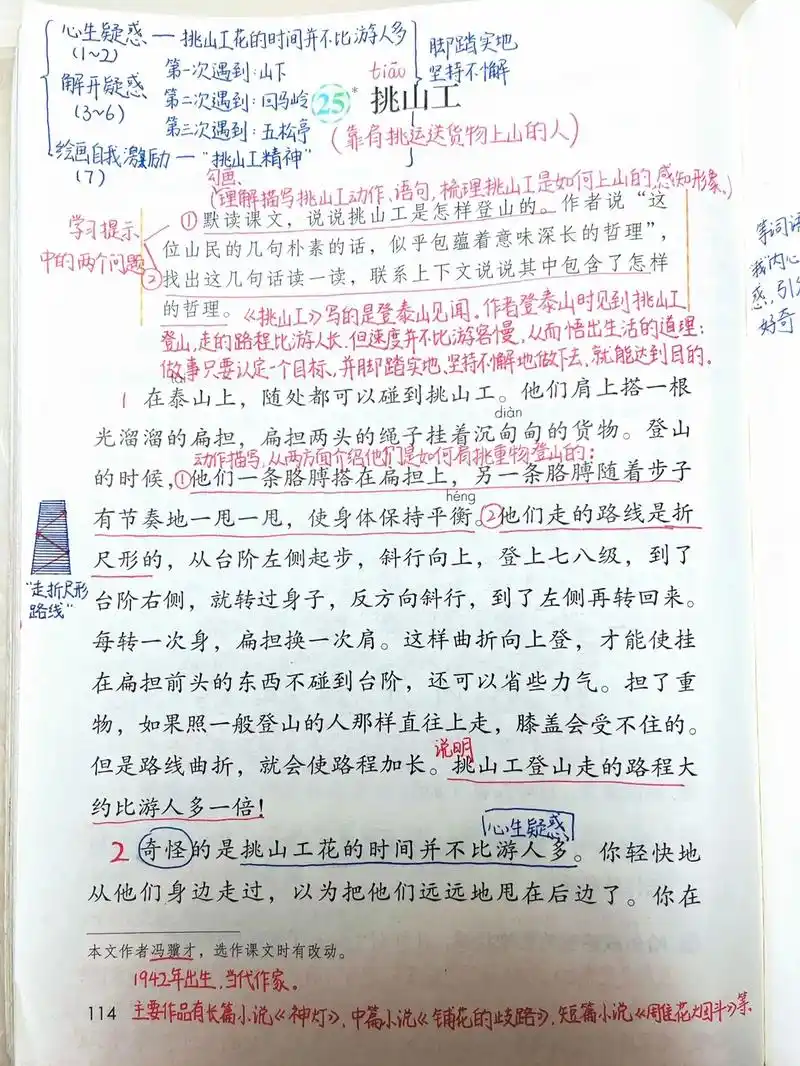 心生疑惑 — 挑山工花的时间并不比游人多
(1~2)
脚踏实地
坚持不懈
解开疑惑
(3~6)
第一次遇到:山下
第二次遇到:回马岭
第三次遇到:五松亭
绘画自我激励 — "挑山工精神"
(7)
tiāo
25* 挑山工
(靠肩挑运送货物上山的人)
勾画
(理解描写挑山工动作、语句,梳理挑山工是如何上山的,感知形象)
学习提示
中的两个问题
①默读课文,说说挑山工是怎样登山的。作者说“这
位山民的几句朴素的话,似乎包蕴着意味深长的哲理”,
②找出这几句话读一读,联系上下文说说其中包含了怎样
的哲理。《挑山工》写的是登泰山见闻。作者登泰山时见到挑山工
登山,走的路程比游人长,但速度并不比游客慢,从而悟出生活的道理:
做事只要认定一个目标,并脚踏实地、坚持不懈地做下去,就能达到目的。
等词语
我内心
惑,引
好奇
tài
1 在泰山上,随处都可以碰到挑山工。他们肩上搭一根
diàn
光溜溜的扁担,扁担两头的绳子挂着沉甸甸的货物。登山
动作描写,从两方面介绍他们是如何肩挑重物登山的:
的时候,①他们一条胳膊搭在扁担上,另一条胳膊随着步子
héng
有节奏地一甩一甩,使身体保持平衡。②他们走的路线是折
尺形的,从台阶左侧起步,斜行向上,登上七八级,到了
"走折尺形
路线"
台阶右侧,就转过身子,反方向斜行,到了左侧再转回来。
每转一次身,扁担换一次肩。这样曲折向上登,才能使挂
在扁担前头的东西不碰到台阶,还可以省些力气。担了重
物,如果照一般登山的人那样直往上走,膝盖会受不住的。
说明
但是路线曲折,就会使路程加长。挑山工登山走的路程大
约比游人多一倍!
心生疑惑
2 奇怪的是挑山工花的时间并不比游人多。你轻快地
从他们身边走过,以为把他们远远地甩在后边了。你在
本文作者冯骥才,选作课文时有改动。
1942年出生,当代作家。
114 主要作品有长篇小说《神灯》,中篇小说《铺花的歧路》,短篇小说《雕花烟斗》等